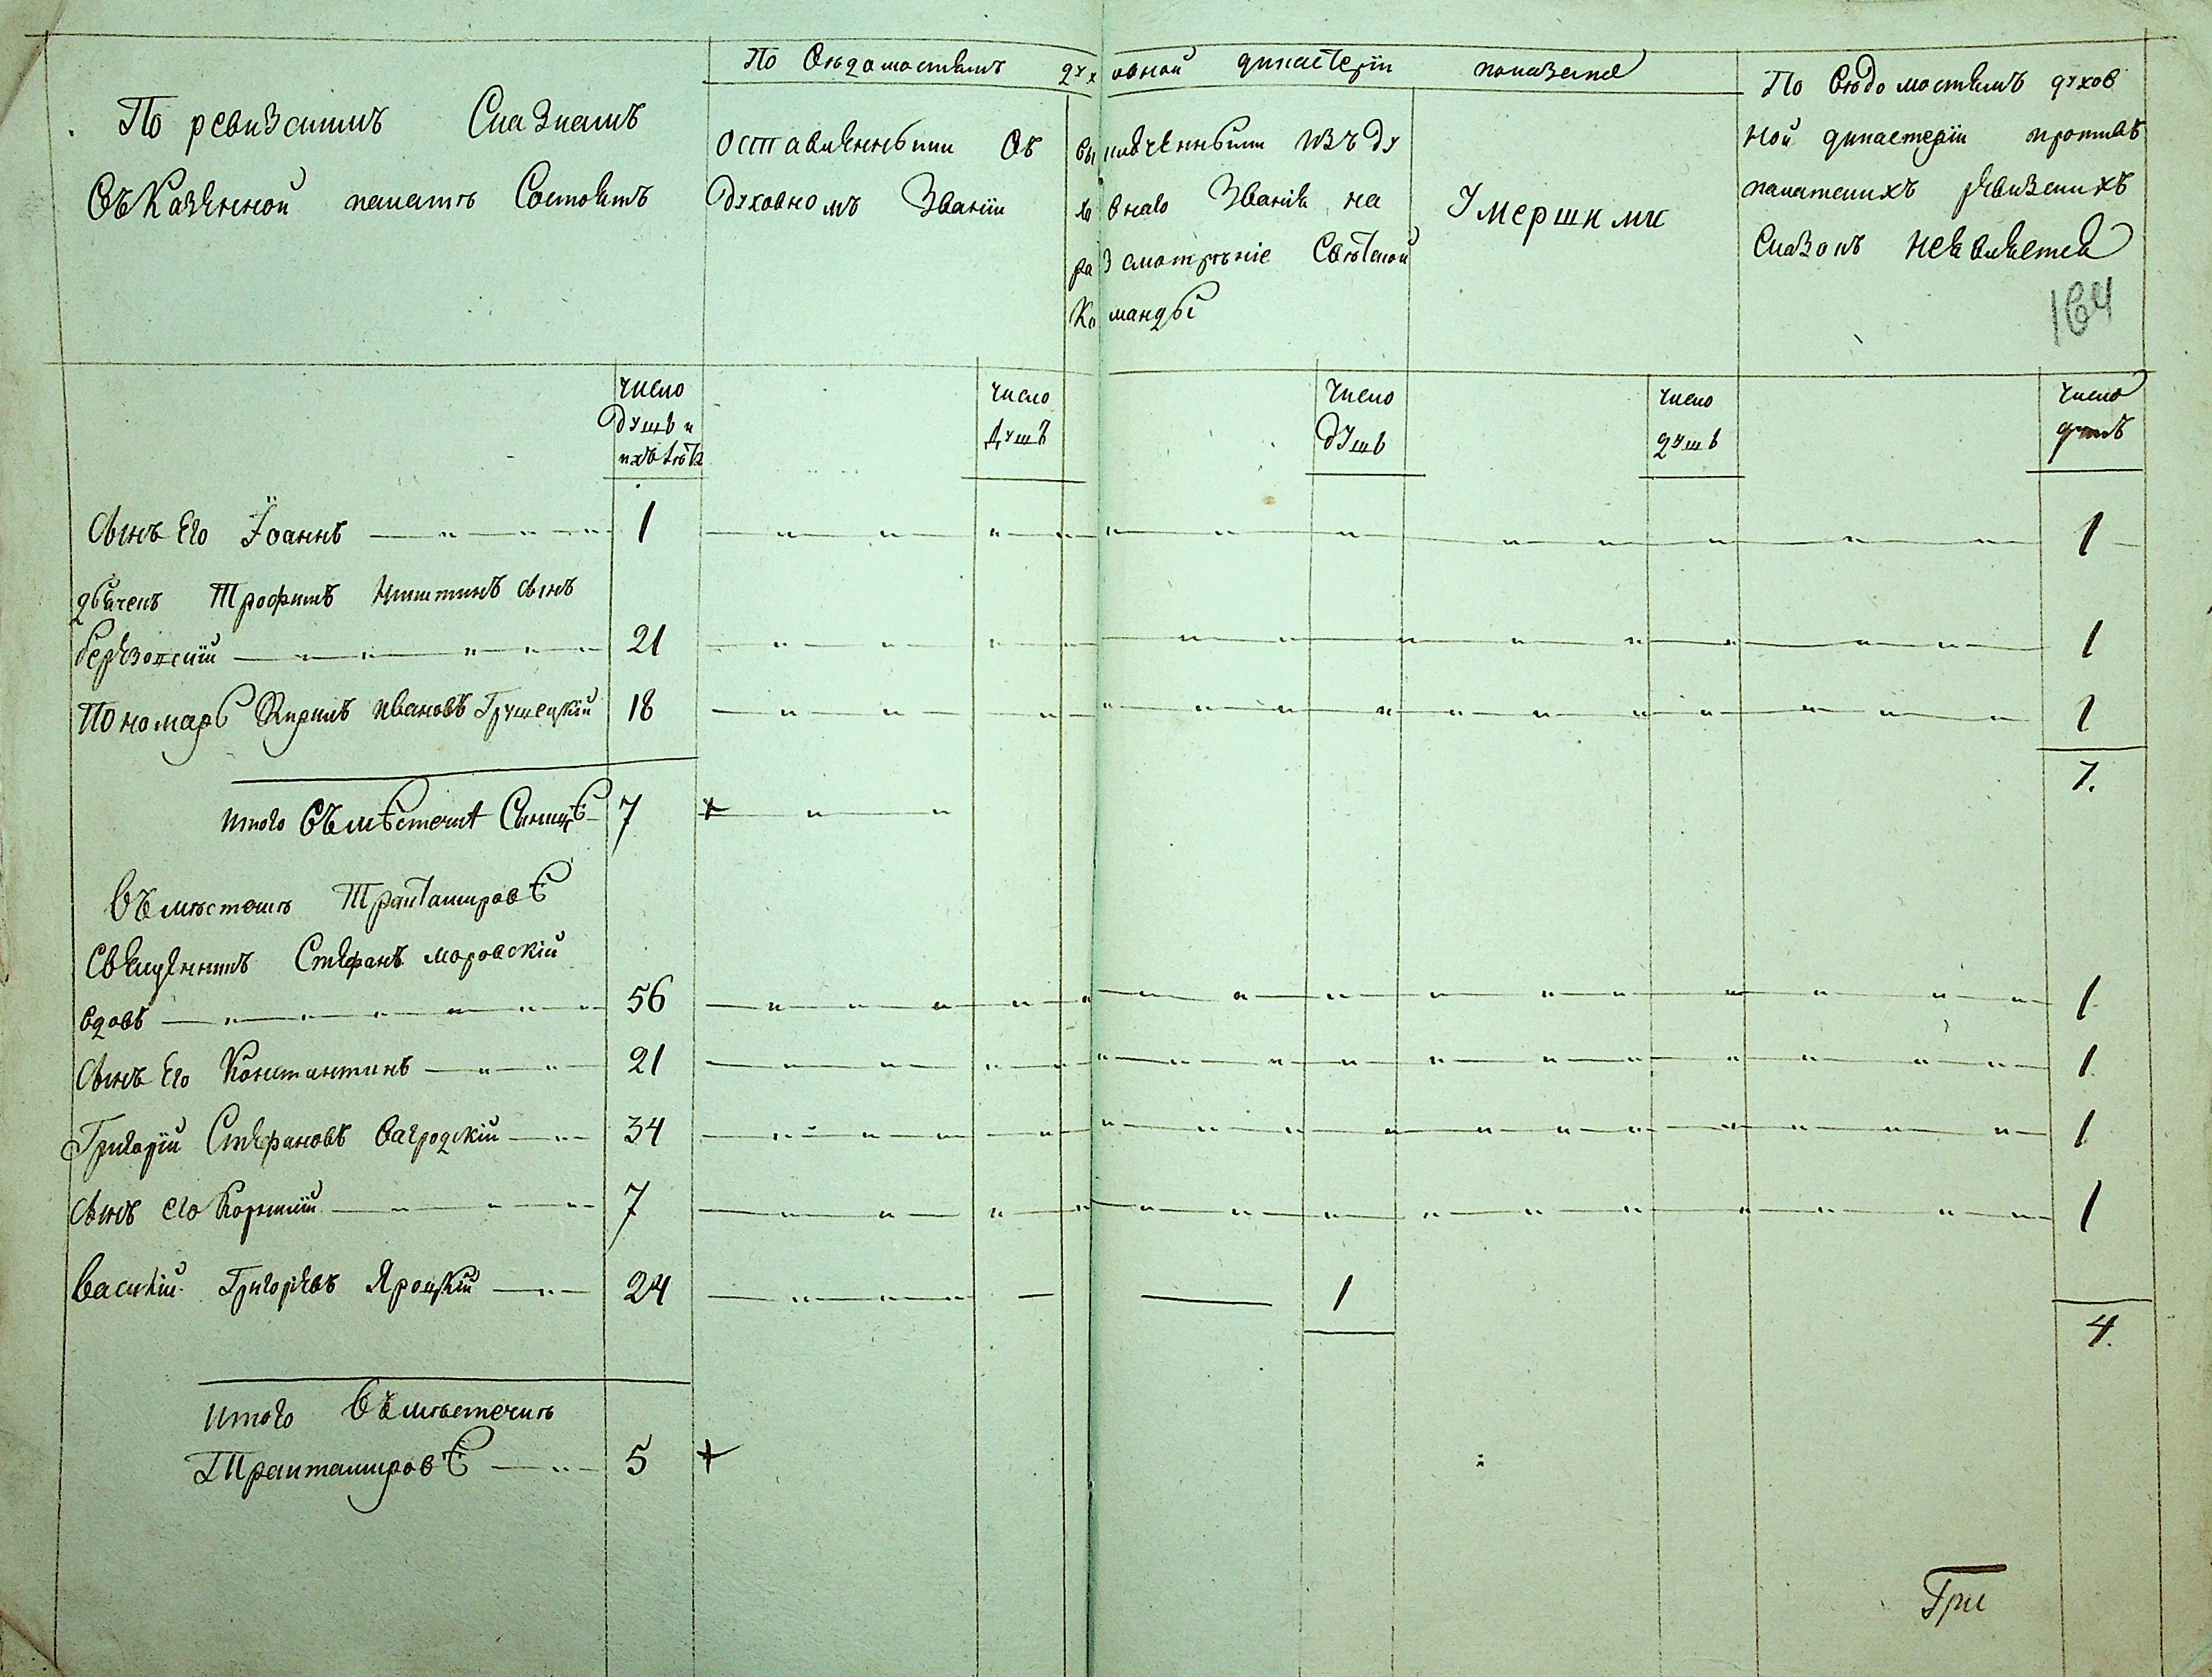 По ревизскимъ Сказкамъ
Въ Казенной палатѣ Состоитъ
По Вѣдомостямъ духовной дикастеріи показано
Оставленными Въ
Духовномъ Званіи
Вы ключенными изъ Ду
хо внаго Званія на
ра з смотрѣніе Свѣтской
Ко манды
Умершими
По Вѣдомостямъ духов
ной дикастеріи противъ
палатскихъ ревизскихъ
Сказокъ неявляется
164
число
Душъ и
ихъ лѣта
число
Душъ
число
Душъ
число
душъ
число
душъ
Сынъ Его Іоаннъ 1 1
дьячекъ Трофимъ Никитинъ Сынъ
березовскій 21 1
Пономарь Кирилъ Ивановъ Грушецкій 18 1
7.
итого Въ мѣстечкѣ 7 +
Въ мѣстечкѣ Трактамировѣ
Священникъ Стефанъ моровскій
вдовъ 56 1
Сынъ Его Константинъ 21 1
Григорій Стефановъ 34 1
Сынъ Его Корнилій 7 1
Василій Григорьевъ Яроцкій 24 1
4.
итого Въ мѣстечкѣ
Трактамировѣ 5 +
Гри